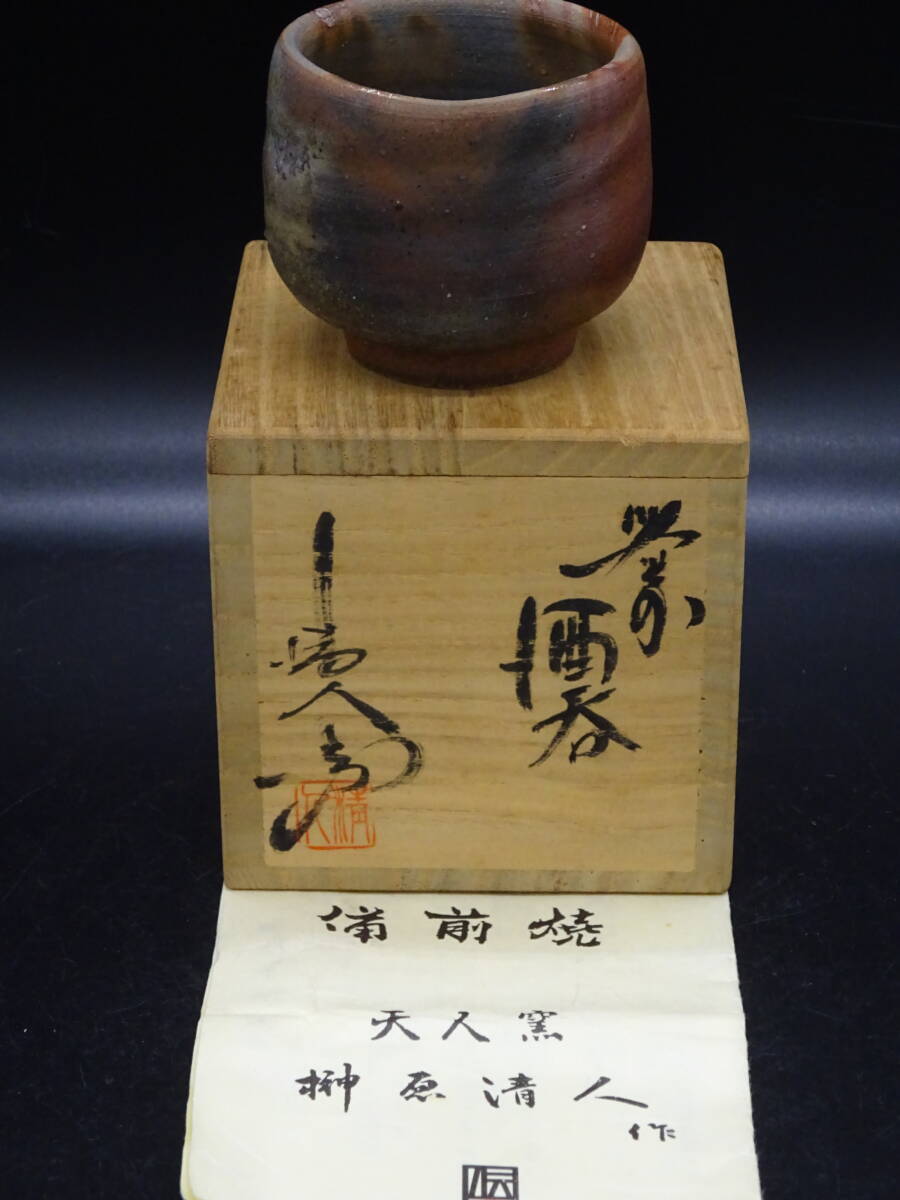 備前
酒呑
清人
清人
備前焼
天人窯
榊原清人
作